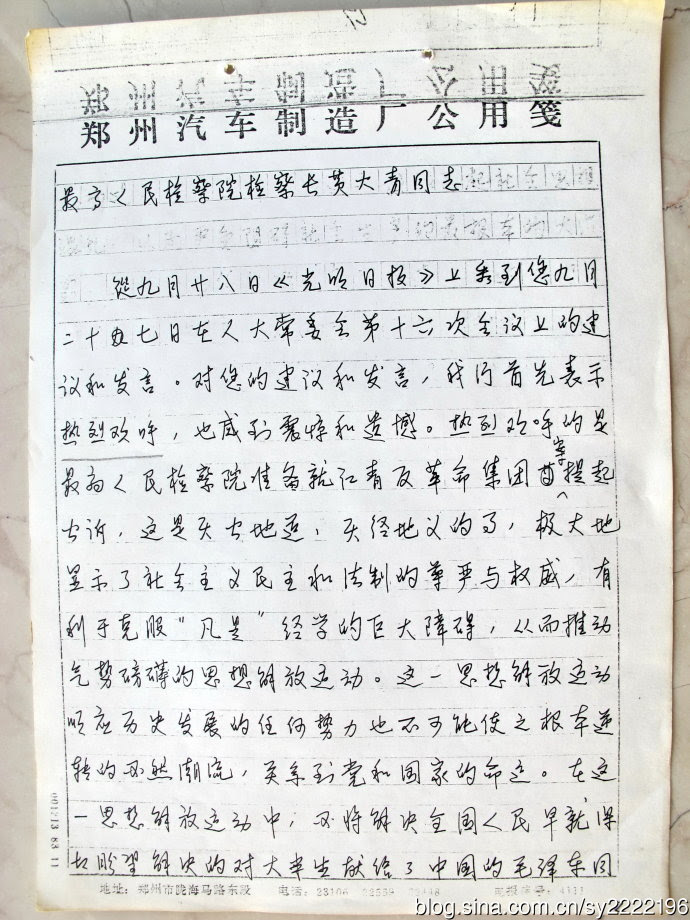 郑州汽车制造厂公用笺
最高人民检察院检察长黄火青同志
從九月廿八日《光明日报》上看到您九月
二十七日在人大常委会第十六次会议上的建
议和发言。对您的建议和发言,我们首先表示
热烈欢呼,也感到震惊和遗憾。热烈欢呼的是
最高人民检察院准备就江青反革命集团案提起
公诉,这是天公地道,天经地义的事,极大地
显示了社会主义民主和法制的尊严与权威,有
利于克服“凡是”经学的巨大障碍,从而推动
气势磅礴的思想解放运动。这一思想解放运动
顺应历史发展的任何势力也不可能使之根本逆
转的必然潮流,关系到党和国家的命运。在这
一思想解放运动中,必将解决全国人民早就深
切盼望解决的对大半生献给了中国的毛泽东同
地址:郑州市陇海马路东段 电话:
0012/13 83.11
blog.sina.com.cn/sy2222196